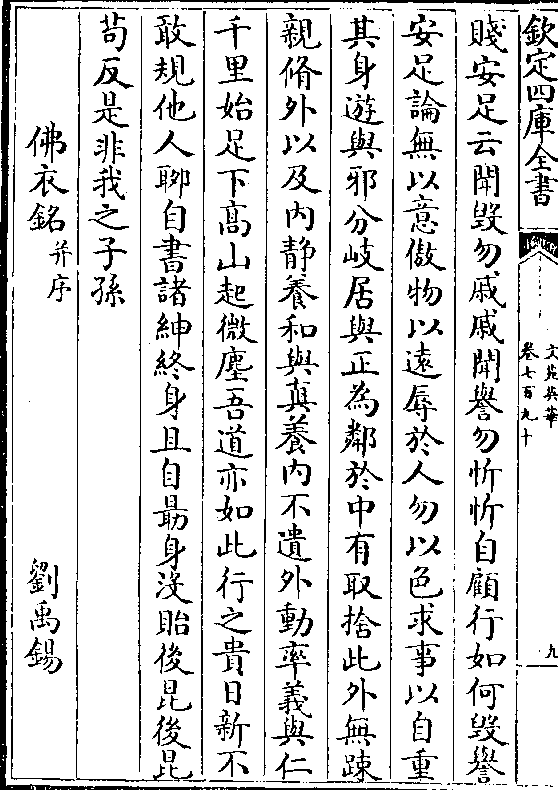 欽定四庫全書
文苑英華
卷七百九十
九
賤安足云聞毀勿戚戚聞譽勿忻忻自顧行如何毀譽
安足論無以意傲物以遠辱於人勿以色求事以自重
其身遊與邪分岐居與正為鄰於中有取捨此外無踈
親脩外以及内静養和與真養内不遺外動率義與仁
千里始足下髙山起微塵吾道亦如此行之貴日新不
敢規他人聊自書諸紳終身且自朂身沒貽後昆後昆
茍反是非我之子孫
佛衣銘并序
劉禹錫